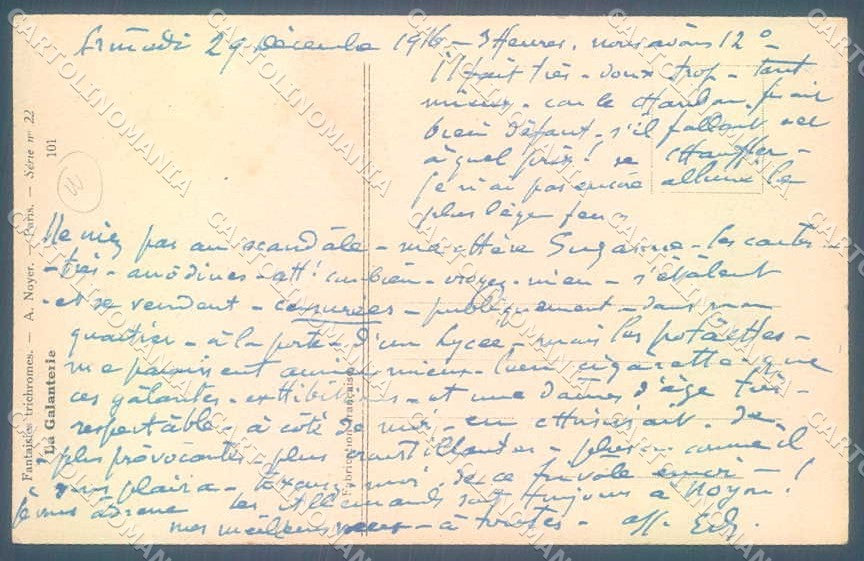 Samedi 29 Décembre 1916 - 3 Heures. nous avons 12° -
il fait très - doux trop - tant
mieux - car le charbon fait
bien défaut - s'il fallait
à quel prix! se chauffer -
je n'ai pas encore allumé le
plus léger feu
Ne criez pas au scandale - ma chère Suzanne - les cartes
- très - anodines - ah! combien - croyez-m'en - s'étalent
- et se vendent - censurées - publiquement - dans mon
quartier - à la porte - d'un Lycée - mais les potaches -
me paraissent aimer mieux - leur cigarette - que
ces galantes - exhibitions - et une dame d'âge très -
respectable - à côté de moi - en choisissait - de
plus provocantes - plus croustillantes - comme il
vous plaira - Excusez - moi de ce frivole envoi -
les Allemands sont toujours à Noyon!
je vous adresse
mes meilleurs vœux - à toutes - aff.
Fantaisies trichromes. — A. Noyer. — Paris. — Série n° 22
La Galanterie
101
Fabrication française
CARTOLINOMANIA